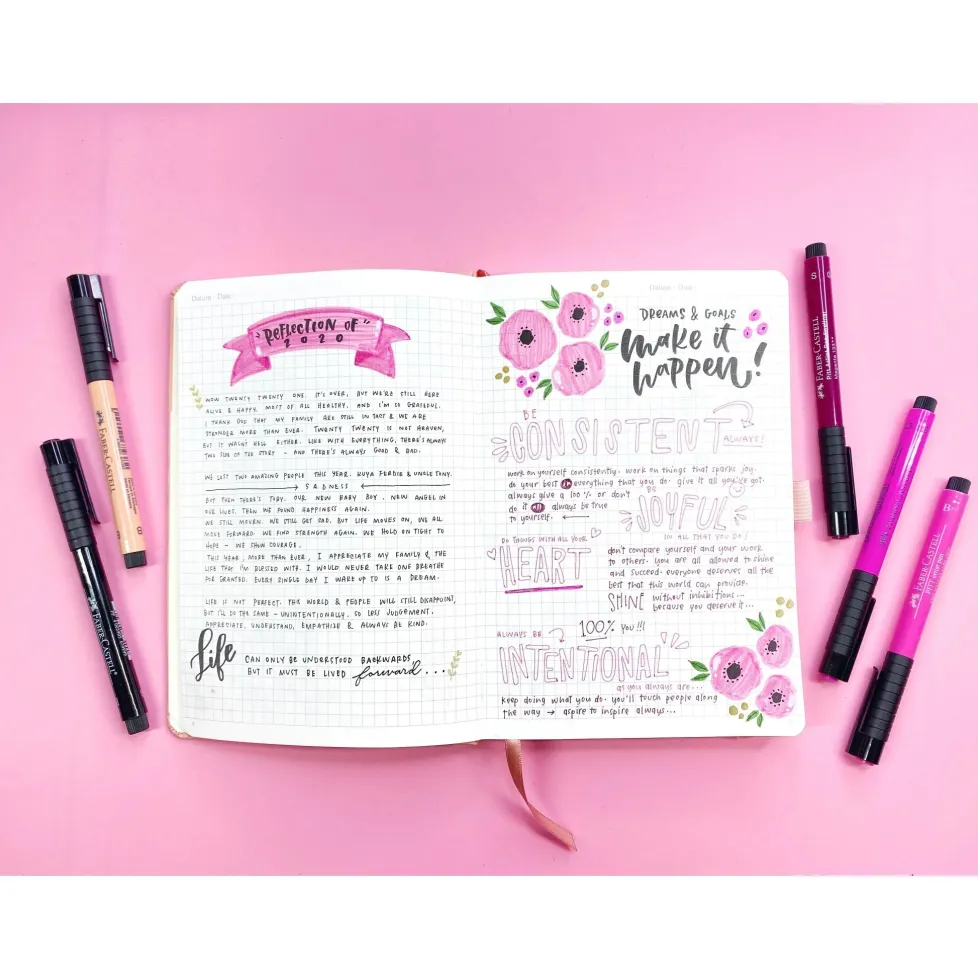 Datum · Date
"REFLECTION OF"
2020
NOW TWENTY TWENTY ONE. IT'S OVER, BUT WE'RE STILL HERE
ALIVE & HAPPY. MOST OF ALL HEALTHY. AND I'M SO GRATEFUL.
I THANK GOD THAT MY FAMILY ARE STILL INTACT & WE ARE
STRONGER MORE THAN EVER. TWENTY TWENTY IS NOT HEAVEN,
BUT IT WASN'T HELL EITHER. LIKE WITH EVERYTHING, THERE'S ALWAYS
TWO SIDE OF THE STORY - AND THERE'S ALWAYS GOOD & BAD.
WE LOST TWO AMAZING PEOPLE THIS YEAR. KUYA FERDIE & UNCLE TONY.
SADNESS
BUT THEN THERE'S TOBY. OUR NEW BABY BOY. NEW ANGEL IN
OUR LIVES. THEN WE FOUND HAPPINESS AGAIN.
WE STILL MOURN. WE STILL GET SAD. BUT LIFE MOVES ON, WE ALL
MOVE FORWARD. WE FIND STRENGTH AGAIN. WE HOLD ON TIGHT TO
HOPE - WE SHOW COURAGE.
THIS YEAR, MORE THAN EVER, I APPRECIATE MY FAMILY & THE
LIFE THAT I'M BLESSED WITH. I WOULD NEVER TAKE ONE BREATHE
FOR GRANTED. EVERY SINGLE DAY I WAKE UP TO IS A DREAM.
LIFE IS NOT PERFECT. THE WORLD & PEOPLE WILL STILL DISAPPOINT,
BUT I'LL DO THE SAME - UNINTENTIONALLY. SO LESS JUDGEMENT.
APPRECIATE, UNDERSTAND, EMPATHISE & ALWAYS BE KIND.
Life CAN ONLY BE UNDERSTOOD BACKWARDS
BUT IT MUST BE LIVED forward...
Datum · Date
DREAMS & GOALS
make it
happen!
BE
CONSISTENT
ALWAYS!
work on yourself consistently. work on things that sparks joy.
do your best in everything that you do. give it all you've got.
always give a 100% or don't
do it all always be true
to yourself.
BE
JOYFUL
IN ALL THAT YOU DO!
DO THINGS WITH ALL YOUR
HEART
don't compare yourself and your work
to others. you are all allowed to shine
and succeed. everyone deserves all the
best that this world can provide.
SHINE without inhibitions...
because you deserve it...
ALWAYS BE
100% YOU!!!
INTENTIONAL
as you always are...
keep doing what you do. you'll touch people along
the way → aspire to inspire always...
FABER-CASTELL
B
FABER-CASTELL
S
FABER-CASTELL
S
FABER-CASTELL
B